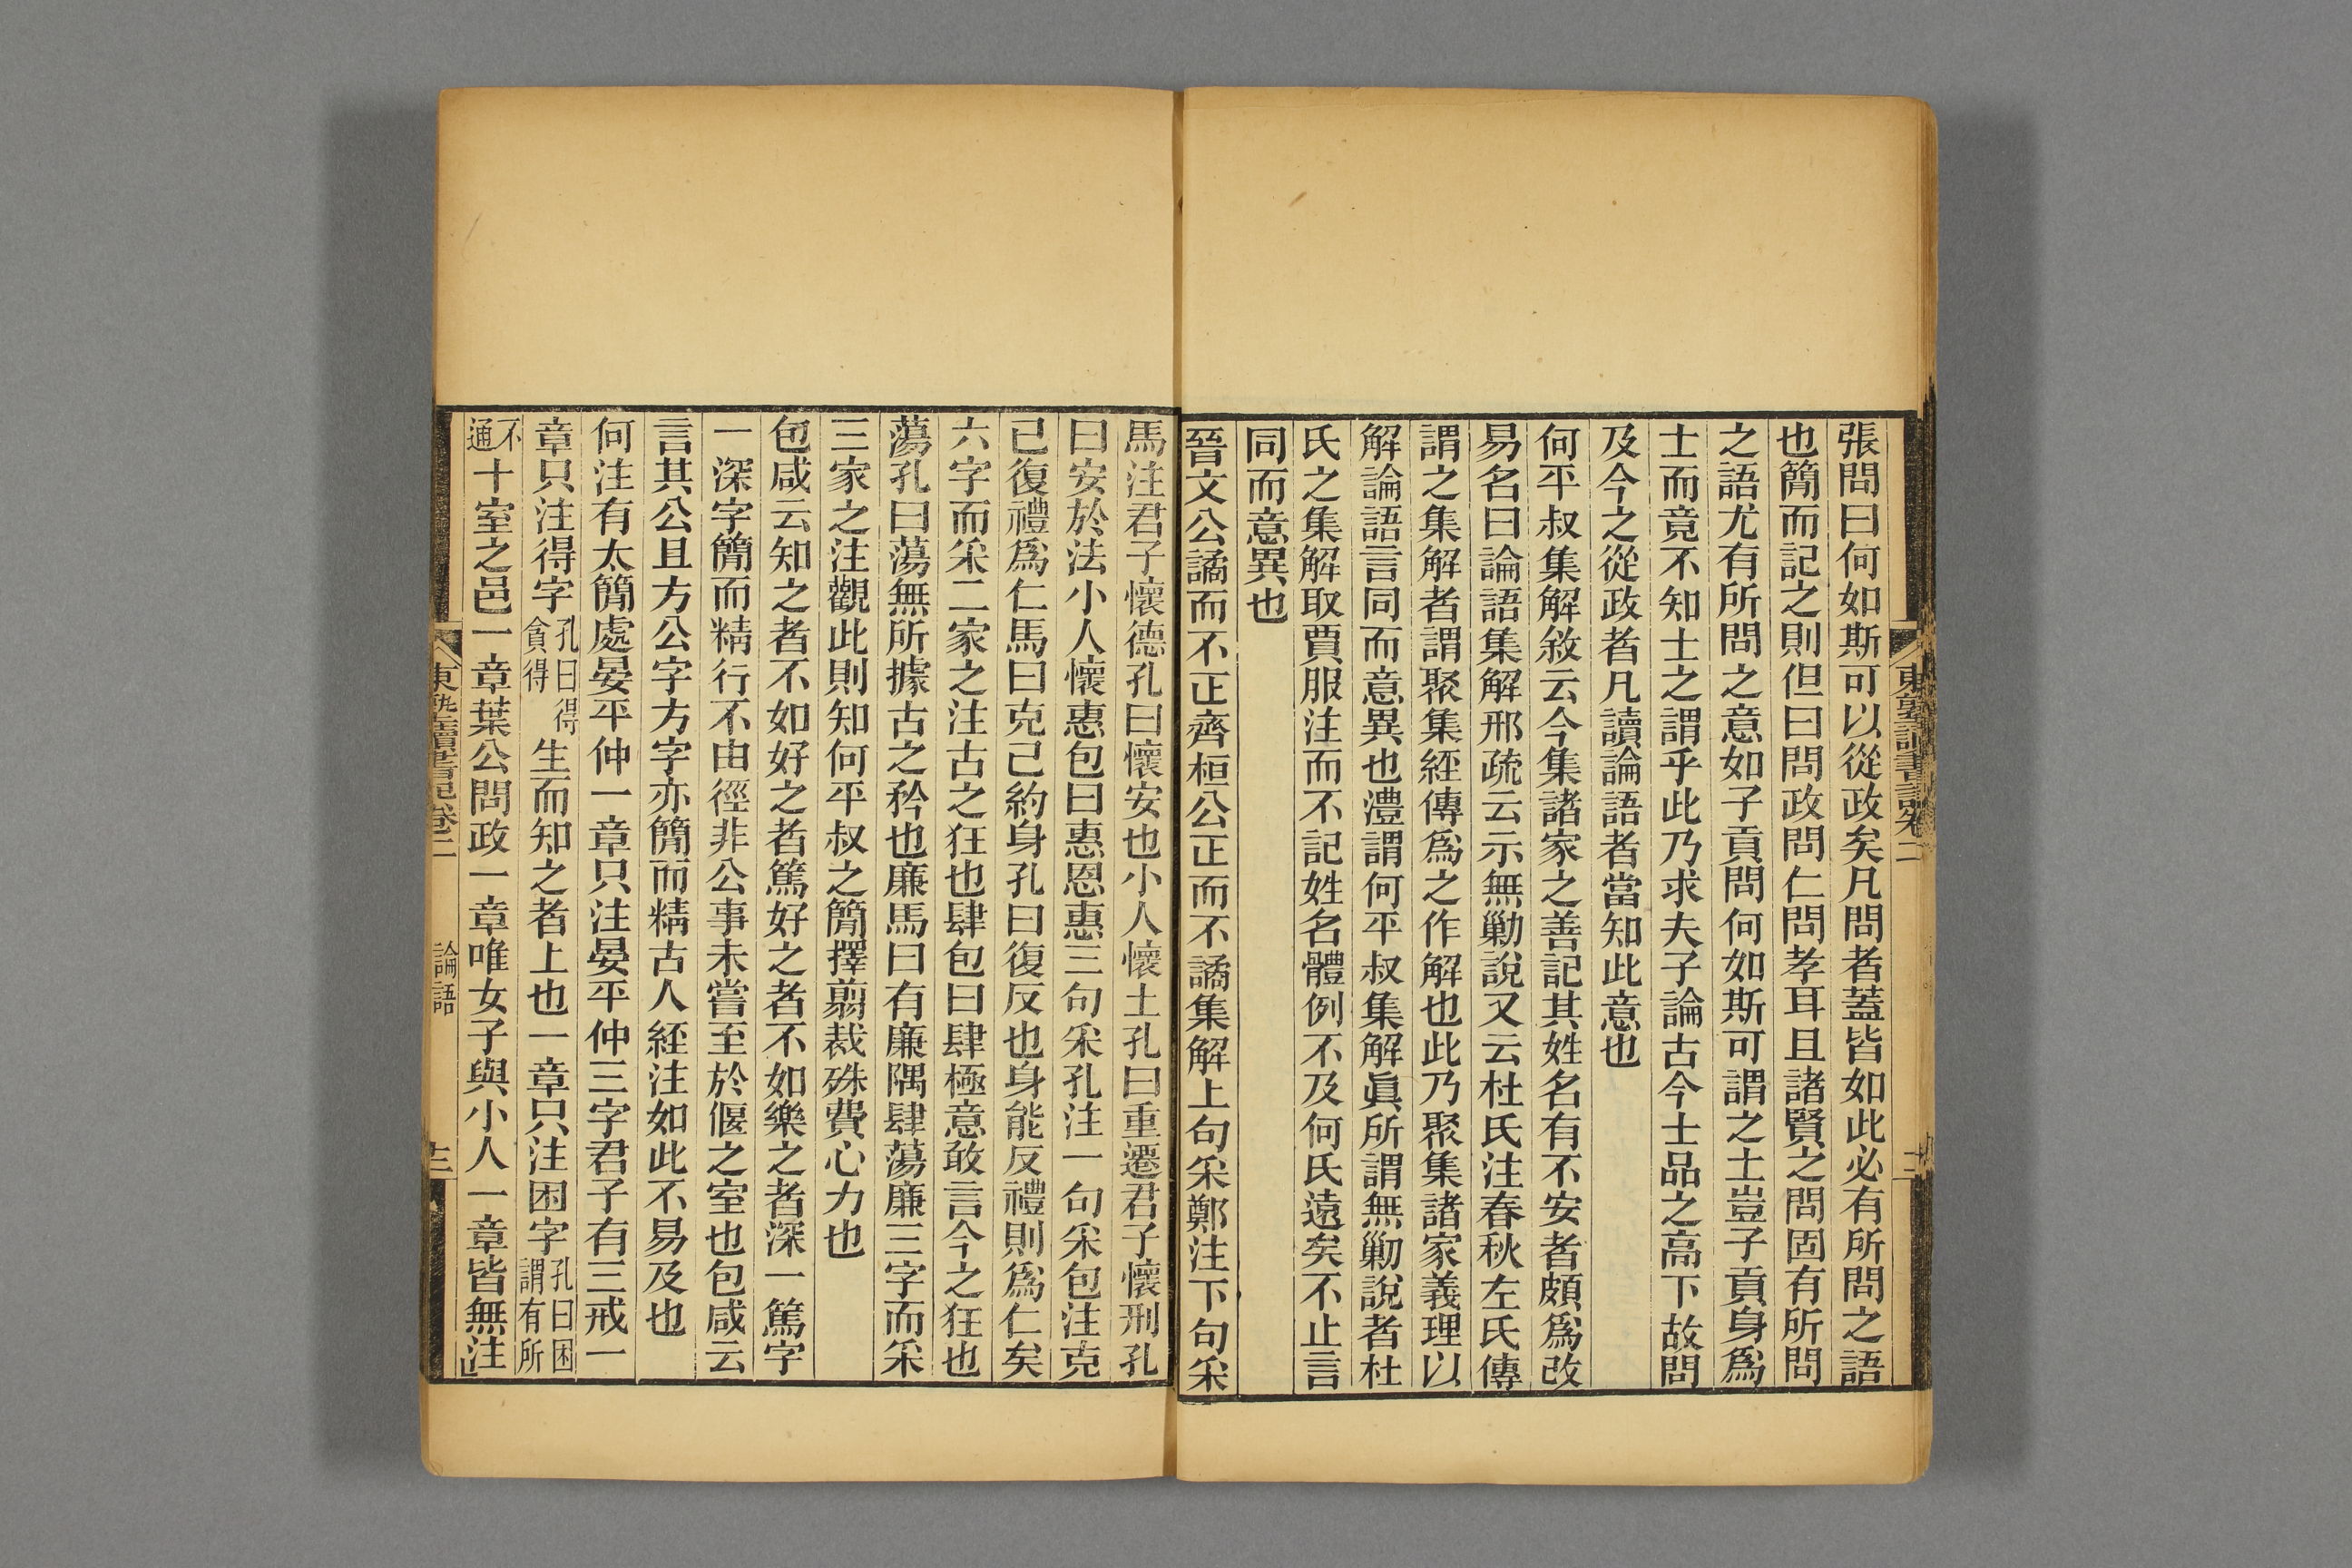 張問曰何如斯可以從政矣凡問者蓋皆如此必有所問之語
也簡而記之則但曰問政問仁問孝耳且諸賢之問固有所問
之語尤有所問之意如子貢問何如斯可謂之士豈子貢身爲
士而竟不知士之謂乎此乃求夫子論古今士品之高下故問
及今之從政者凡讀論語者當知此意也
何平叔集解敘云今集諸家之善記其姓名有不安者頗爲改
易名曰論語集解邢疏云示無勦說又云杜氏注春秋左氏傳
謂之集解者謂聚集經傳爲之作解也此乃聚集諸家義理以
解論語言同而意異也澧謂何平叔集解眞所謂無勦說者杜
氏之集解取賈服注而不記姓名體例不及何氏遠矣不止言
同而意異也
晉文公譎而不正齊桓公正而不譎集解上句采鄭注下句采
馬注君子懷德孔曰懷安也小人懷土孔曰重遷君子懷刑孔
曰安於法小人懷惠包曰惠恩惠三句采孔注一句采包注克
己復禮爲仁馬曰克己約身孔曰復反也身能反禮則爲仁矣
六字而采二家之注古之狂也肆包曰肆極意敢言今之狂也
蕩孔曰蕩無所據古之矜也廉馬曰有廉隅肆蕩廉三字而采
三家之注觀此則知何平叔之簡擇翦裁殊費心力也
包咸云知之者不如好之者篤好之者不如樂之者深一篤字
一深字簡而精行不由徑非公事未嘗至於偃之室也包咸云
言其公且方公字方字亦簡而精古人經注如此不易及也
何注有太簡處晏平仲一章只注晏平仲三字君子有三戒一
章只注得字孔曰得貪得生而知之者上也一章只注困字孔曰困謂有所
不通十室之邑一章葉公問政一章唯女子與小人一章皆無注
東塾讀書記卷二
論語